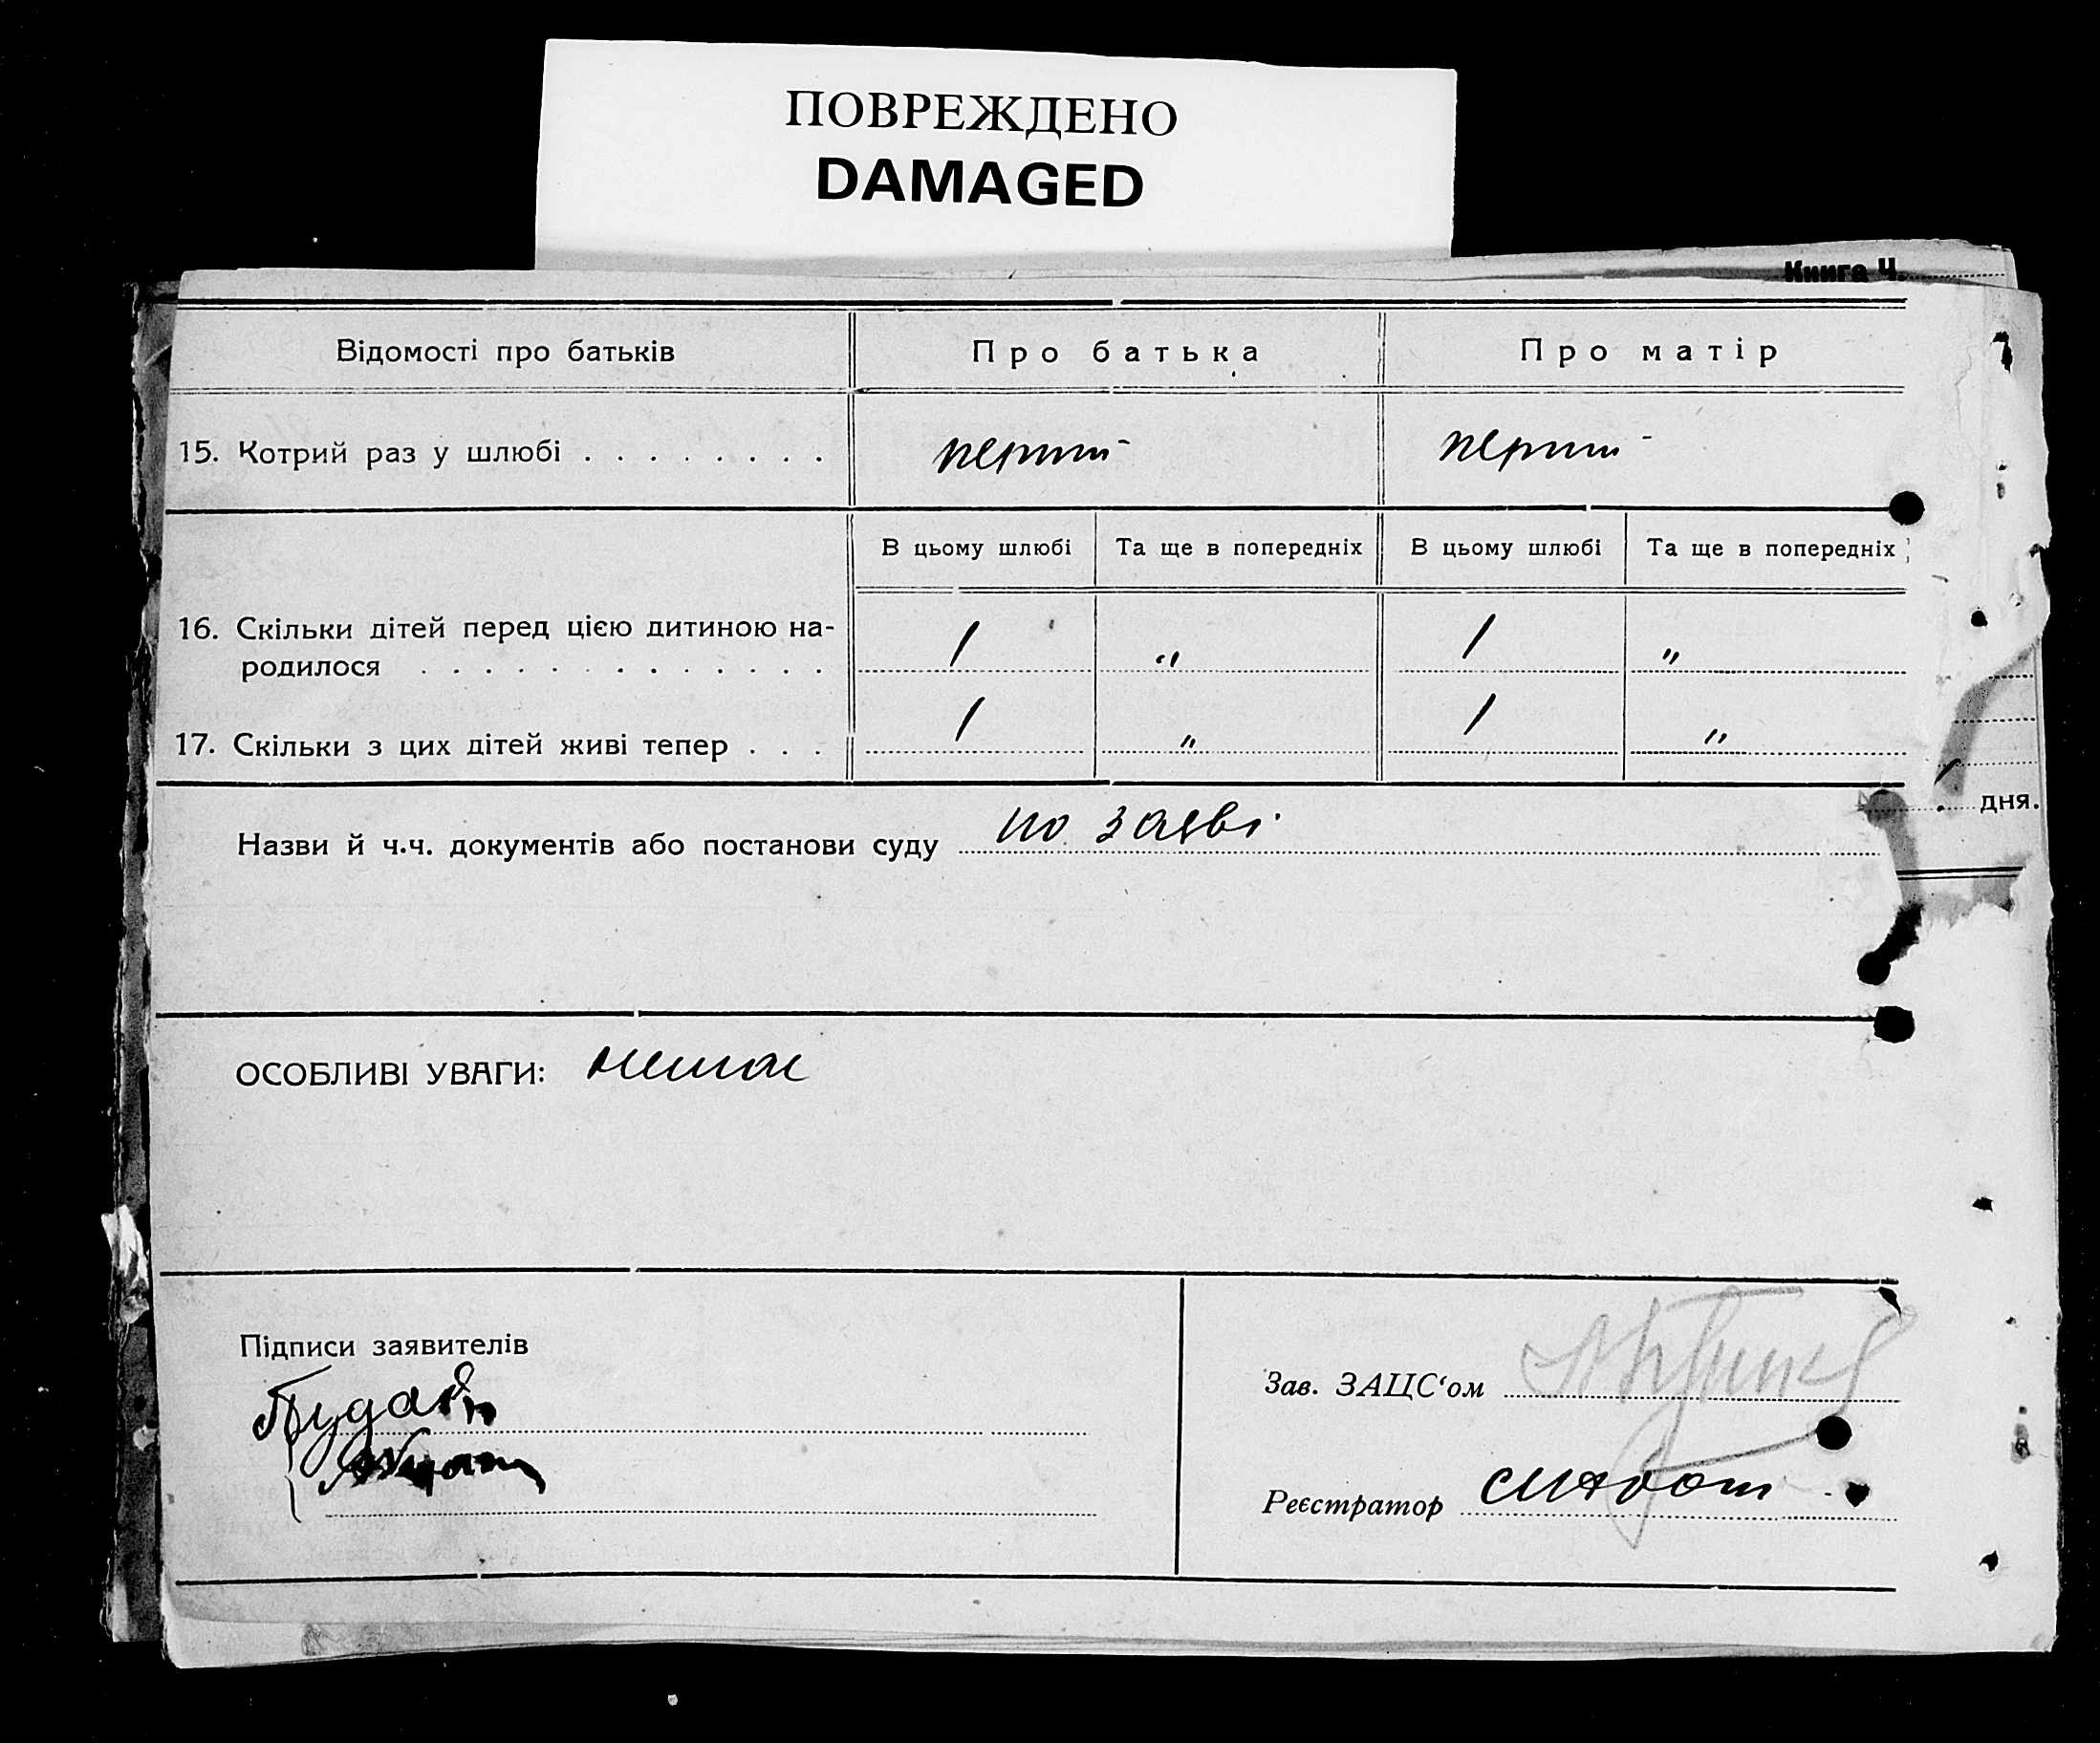 ПОВРЕЖДЕНО
DAMAGED
Книга Ч.
Відомості про батьків Про батька Про матір
15. Котрий раз у шлюбі . . . . . . . . перший перший
В цьому шлюбі Та ще в попередніх В цьому шлюбі Та ще в попередніх
16. Скільки дітей перед цією дитиною на-
родилося . . . . . . . . . . . . . 1 " 1 "
17. Скільки з цих дітей живі тепер . . . 1 " 1 "
дня.
Назви й ч.ч. документів або постанови суду по заяві
ОСОБЛИВІ УВАГИ: немає
Підписи заявителів
Зав. ЗАЦС‘ом
Реєстратор